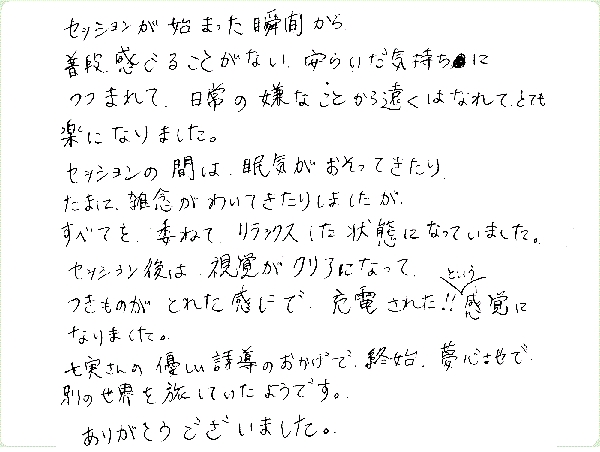 セッションが始まった瞬間から
普段、感じることがない、安らいだ気持ちに
つつまれて、日常の嫌なことから遠くはなれて、とても
楽になりました。
セッションの間は、眠気がおそってきたり、
たまに、雑念がわいてきたりしましたが、
すべてを、委ねて、リラックスした状態になっていました。
セッション後は、視覚がクリアになって、
つきものがとれた感じで、充電された!!という感覚に
なりました。
七実さんの優しい誘導のおかげで、終始、夢心地で、
別の世界を旅していたようです。
ありがとうございました。